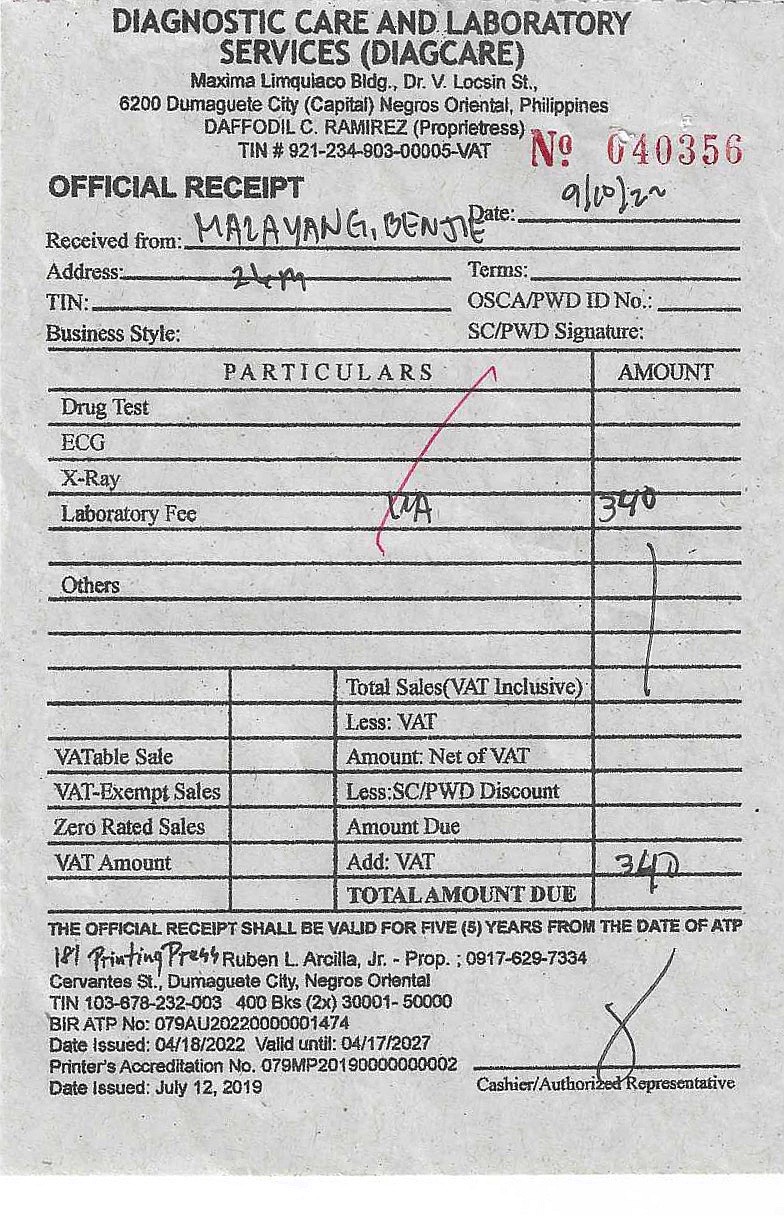 DIAGNOSTIC CARE AND LABORATORY
SERVICES (DIAGCARE)
Maxima Limquiaco Bldg., Dr. V. Locsin St.,
6200 Dumaguete City (Capital) Negros Oriental, Philippines
DAFFODIL C. RAMIREZ (Proprietress)
TIN # 921-234-903-00005-VAT
Nº 040356
OFFICIAL RECEIPT
Date: 9/10/22
Received from: MALAYANG, BENJIE
Address: Terms:
TIN: OSCA/PWD ID No.:
Business Style: SC/PWD Signature:
PARTICULARS AMOUNT
Drug Test
ECG
X-Ray
Laboratory Fee 340
Others
Total Sales(VAT Inclusive)
Less: VAT
VATable Sale Amount: Net of VAT
VAT-Exempt Sales Less:SC/PWD Discount
Zero Rated Sales Amount Due
VAT Amount Add: VAT 340
TOTAL AMOUNT DUE
THE OFFICIAL RECEIPT SHALL BE VALID FOR FIVE (5) YEARS FROM THE DATE OF ATP
181 Printing Press Ruben L. Arcilla, Jr. - Prop. ; 0917-629-7334
Cervantes St., Dumaguete City, Negros Oriental
TIN 103-678-232-003 400 Bks (2x) 30001- 50000
BIR ATP No: 079AU20220000001474
Date Issued: 04/18/2022 Valid until: 04/17/2027
Printer's Accreditation No. 079MP20190000000002
Date Issued: July 12, 2019
Cashier/Authorized Representative